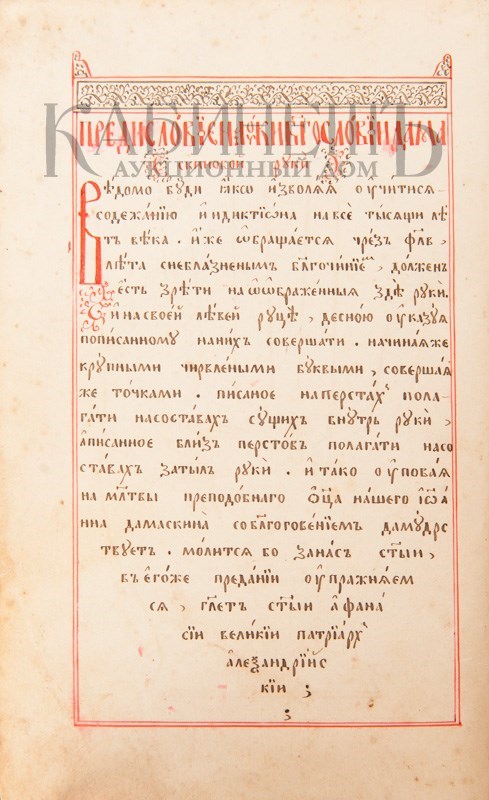 КАБИНЕТЪ
АУКЦИОННЫЙ ДОМ
скинской руки
Вѣдомо буди ꙗко изволяꙗ оучитися
содежанїю и҆ндиктїѡна на всѐ тысящи лѣ
тъ вѣка . и҆же ѡ҆бращается чрез̾ фл҃в
лѣта снеблазненымъ бл҃гочинїе , должен
есть зрѣти на ѡ҆ѡбраженныꙗ здѣ руки.
и҆ на своей лѣвей руцѣ , десною оуказуꙗ
пописанному на них̾ совершати . начинаꙗ же
крупными чирвлеными буквыми , совершаꙗ
же точками . писаное наперстах̾ пола
гати насоставах̾ сущих̾ внутрь руки ,
а҆писанное близ̾ перстов̾ полагати насо
ставах̾ затыл̾ руки . и҆ тако оуповаꙗ
на мл҃твы преподобнаго ѻ҆ц҃а нашего і҆ѡ҆а
нна дамаскина со бл҃гоговѣнїемъ да мудрс
твуетъ . молится бо за нас̾ ст҃ыи ,
въ е҆гоже предании оупражняем
ся , гл҃етъ ст҃ыи а҆фана
сїи великїи патрїарх̾
а҆леѯандрїис
кїи ;
;